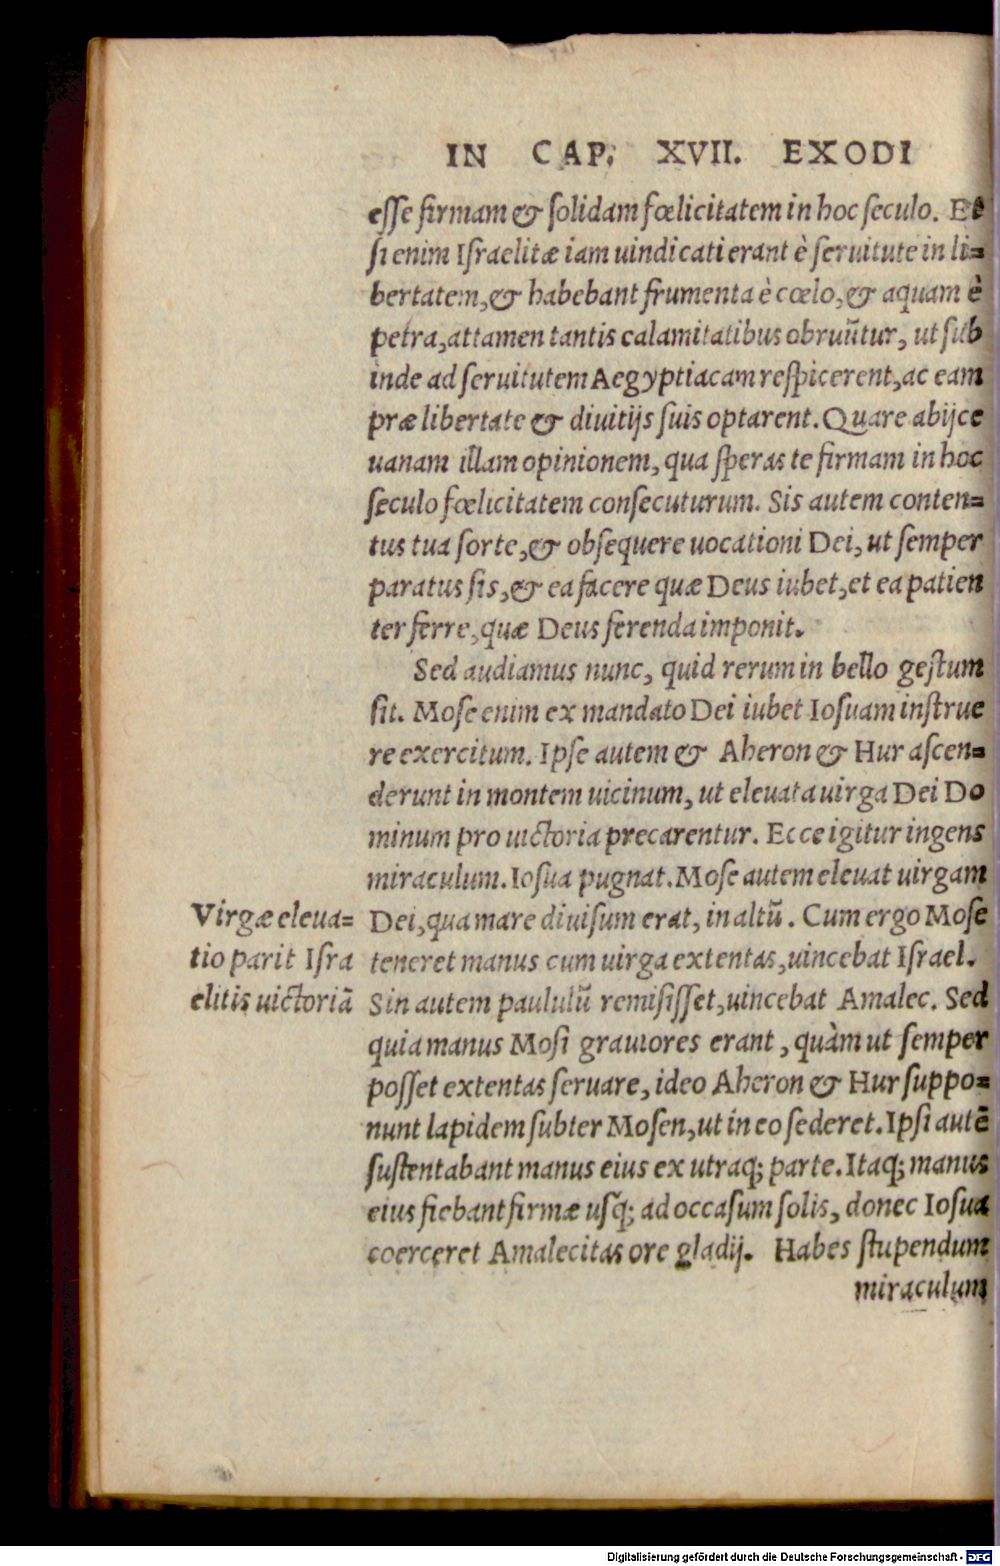 IN CAP. XVII. EXODI
esse firmam & solidam fœlicitatem in hoc seculo. Et
si enim Israelitæ iam uindicati erant è seruitute in li=
bertatem, & habebant frumenta è cœlo, & aquam è
petra, attamen tantis calamitatibus obruũtur, ut sub
inde ad seruitutem Aegyptiacam respicerent, ac eam
præ libertate & diuitijs suis optarent. Quare abijce
uanam illam opinionem, qua speras te firmam in hoc
seculo fœlicitatem consecuturum. Sis autem conten=
tus tua sorte, & obsequere uocationi Dei, ut semper
paratus sis, & ea facere quæ Deus iubet, et ea patien
ter ferre, quæ Deus ferenda imponit.
Sed audiamus nunc, quid rerum in bello gestum
sit. Mose enim ex mandato Dei iubet Iosuam instrue
re exercitum. Ipse autem & Aheron & Hur ascen=
derunt in montem uicinum, ut eleuata uirga Dei Do
minum pro uictoria precarentur. Ecce igitur ingens
miraculum. Iosua pugnat. Mose autem eleuat uirgam
Dei, qua mare diuisum erat, in altũ. Cum ergo Mose
teneret manus cum uirga extentas, uincebat Israel.
Sin autem paululũ remisisset, uincebat Amalec. Sed
quia manus Mosi grauiores erant, quàm ut semper
posset extentas seruare, ideo Aheron & Hur suppo=
nunt lapidem subter Mosen, ut in eo sederet. Ipsi autẽ
sustentabant manus eius ex utraq; parte. Itaq; manus
eius fiebant firmæ usq; ad occasum solis, donec Iosua
coerceret Amalecitas ore gladij. Habes stupendum
miraculum
Virgæ eleua=
tio parit Isra
elitis uictoriã
Digitalisierung gefördert durch die Deutsche Forschungsgemeinschaft - DFG